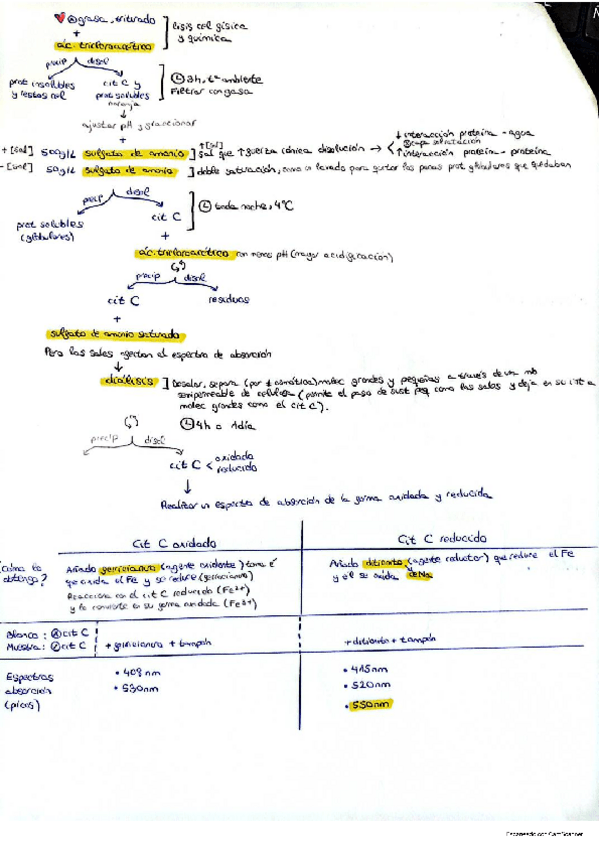 grasa, triturado
+
ác. tricloroacético
lisis cel física
y química
precip disol
prot insolubles
y restos cel
cit C y
prot solubles
naranja
2h, tª ambiente
Filtrar con gasa
ajustar pH y fraccionar
+
+ [sal] 500g/L sulfato de amonio
+[sal]
sal que ↑ fuerza iónica disolución →
↓ interacción proteína - agua
capa solvatación
↑ interacción proteína - proteína
- [sal] 50g/L sulfato de amonio
doble saturación, como un lavado para quitar las pocas prot globulares que quedaban
precip disol
prot solubles
(globulares)
cit C
toda noche, 4ºC
+
ác. tricloroacético con menos pH (mayor acidificación)
precip disol
cit C residuos
+
sulfato de amonio saturado
Pero las sales afectan el espectro de absorción
diálisis
Desalar, separa (por osmótica) molec grandes y pequeñas a través de una mb
semipermeable de celulosa (permite el paso de sust peq como las sales y deja en su int a
molec grandes como el cit C).
4h o 1día
precip disol
cit C < oxidado
reducido
Realizar un espectro de absorción de la forma oxidada y reducida
Cit C oxidado
Cit C reducido
¿Cómo lo
obtengo?
Añado ferricianuro (agente oxidante) toma é
que oxida el Fe y se reduce (ferrocianuro)
Reacciona con el cit C reducido (Fe²⁺)
y lo convierte en su forma oxidada (Fe³⁺)
Añado ditionito (agente reductor) que reduce el Fe
y él se oxida
de Na
Blanco: cit C
Muestra: cit C
+ ferricianuro + tampón
+ ditionito + tampón
Espectros
absorción
(picos)
• 408nm
• 530nm
• 415nm
• 520nm
• 550nm
Escaneado con CamScanner